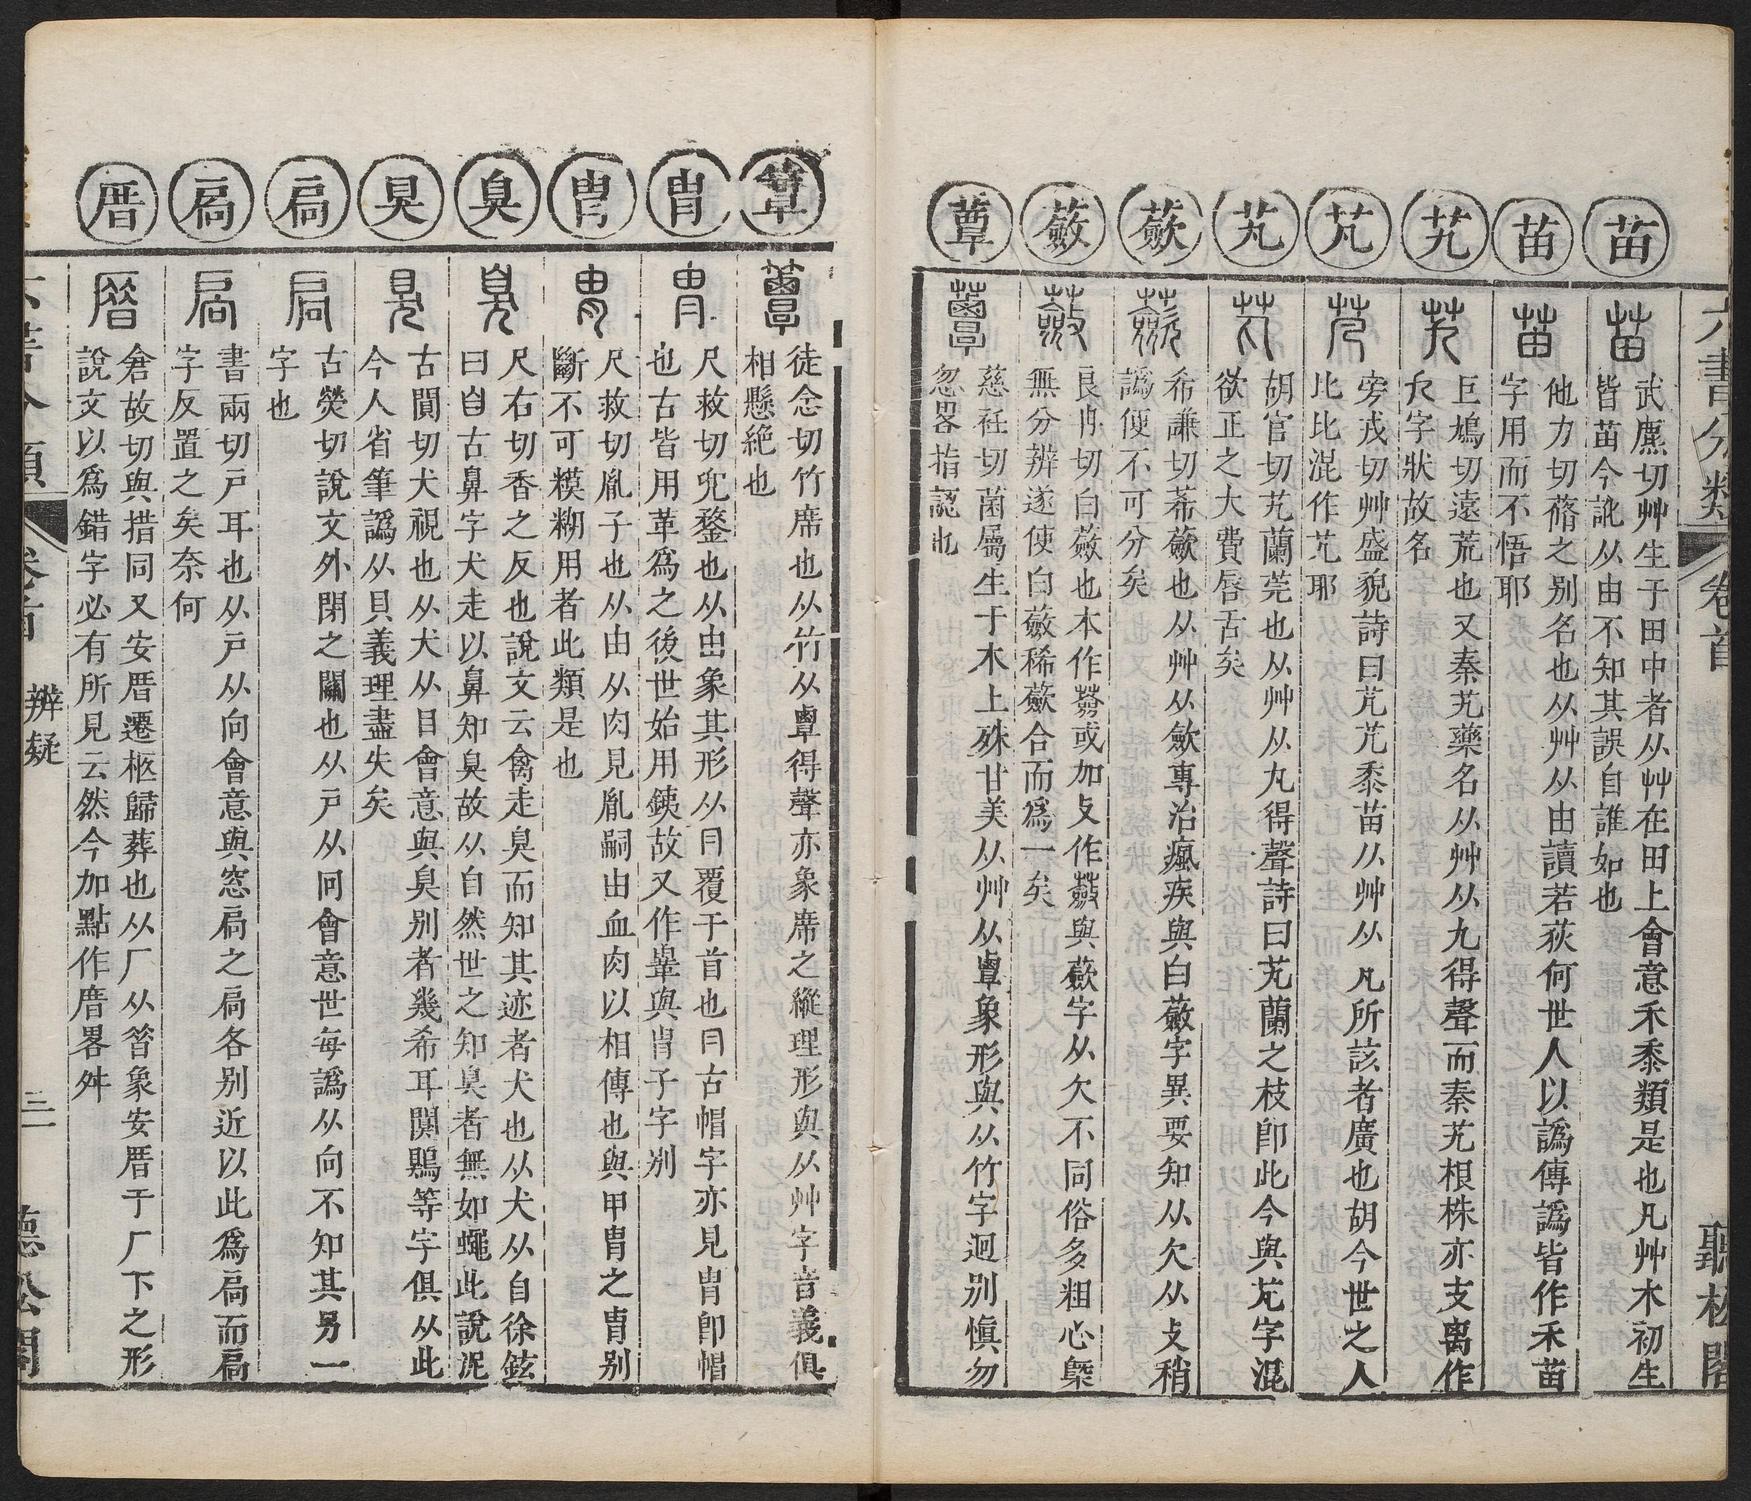 六書分類
卷首
聽松閣
苗
武廘切艸生于田中者从艸在田上會意禾黍類是也凡艸木初生
皆苗今訛从由不知其誤自誰如也
苖
他力切蓨之别名也从艸从由讀若荻何世人以譌傳譌皆作禾苗
字用而不悟耶
艽
巨鳩切遠荒也又秦艽藥名从艸从九得聲而秦艽根株亦支离作
九字狀故名
芃
旁戎切艸盛貌詩曰芃芃黍苗从艸从凡所該者廣也胡今世之人
比比混作艽耶
芄
胡官切芄蘭莞也从艸从丸得聲詩曰芄蘭之枝卽此今與芃字混
欲正之大費唇舌矣
蘞
希謙切莃蘞也从艸从歛專治瘋疾與白蘞字異要知从欠从攴稍
譌便不可分矣
蘞
良冉切白蘞也本作或加攴作蘞與蘞字从欠不同俗多粗心槩
無分辨遂使白蘞稀蘞合而爲一矣
蕈
慈荏切菌屬生于木上殊甘美从艸从覃象形與从竹字迥别愼勿
忽畧指認也
簟
徒念切竹席也从竹从覃得聲亦象席之縱理形與从艸字音義俱
相懸絶也
冑
尺救切兜鍪也从由象其形从冃覆于首也冃古帽字亦見冑卽帽
也古皆用革爲之後世始用銕故又作與胄子字别
胄
尺救切胤子也从由从肉見胤嗣由血肉以相傳也與甲冑之冑别
斷不可糢糊用者此類是也
臭
尺右切香之反也說文云禽走臭而知其迹者犬也从犬从自徐鉉
曰自古鼻字犬走以鼻知臭故从自然世之知臭者無如蠅此說泥
狊
古闃切犬視也从犬从目會意與臭别者幾希耳闃鶪等字俱从此
今人省筆譌从貝義理盡失矣
扃
古熒切說文外閉之關也从戸从冋會意世每譌从向不知其另一
字也
扄
書兩切戸耳也从戸从向會意與窓扄之扃各别近以此爲扃而扃
字反置之矣奈何
厝
倉故切與措同又安厝遷柩歸葬也从厂从昝象安厝于厂下之形
說文以爲錯字必有所見云然今加點作厝畧舛
六書分類
卷首
辨疑
三
聽松閣